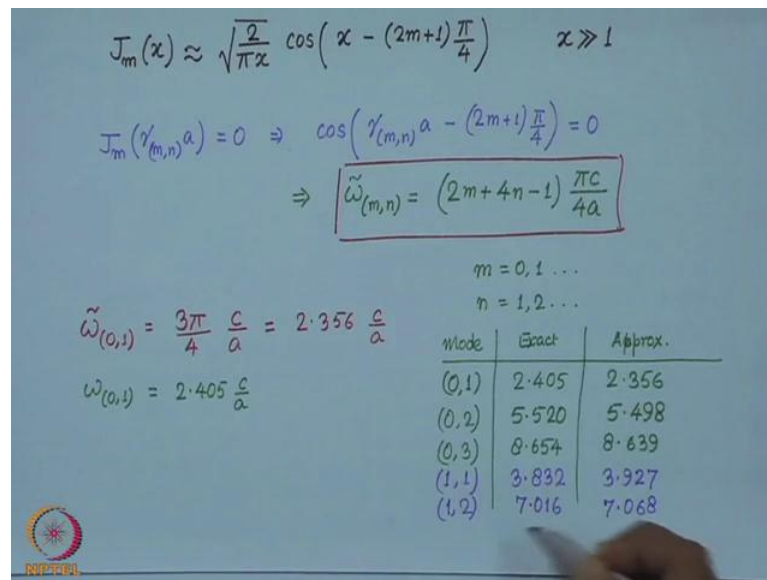 J_m(x) ≈ √(2/πx) cos( x − (2m+1) π/4 )   x ≫ 1
J_m(γ_(m,n) a) = 0 ⇒ cos( γ_(m,n) a − (2m+1) π/4 ) = 0
⇒ ω̃_(m,n) = (2m + 4n − 1) πc/4a
m = 0, 1 ...
n = 1, 2 ...
ω̃_(0,1) = 3π/4 c/a = 2.356 c/a
ω_(0,1) = 2.405 c/a
Mode | Exact | Approx.
(0,1) | 2.405 | 2.356
(0,2) | 5.520 | 5.498
(0,3) | 8.654 | 8.639
(1,1) | 3.832 | 3.927
(1,2) | 7.016 | 7.068
NPTEL